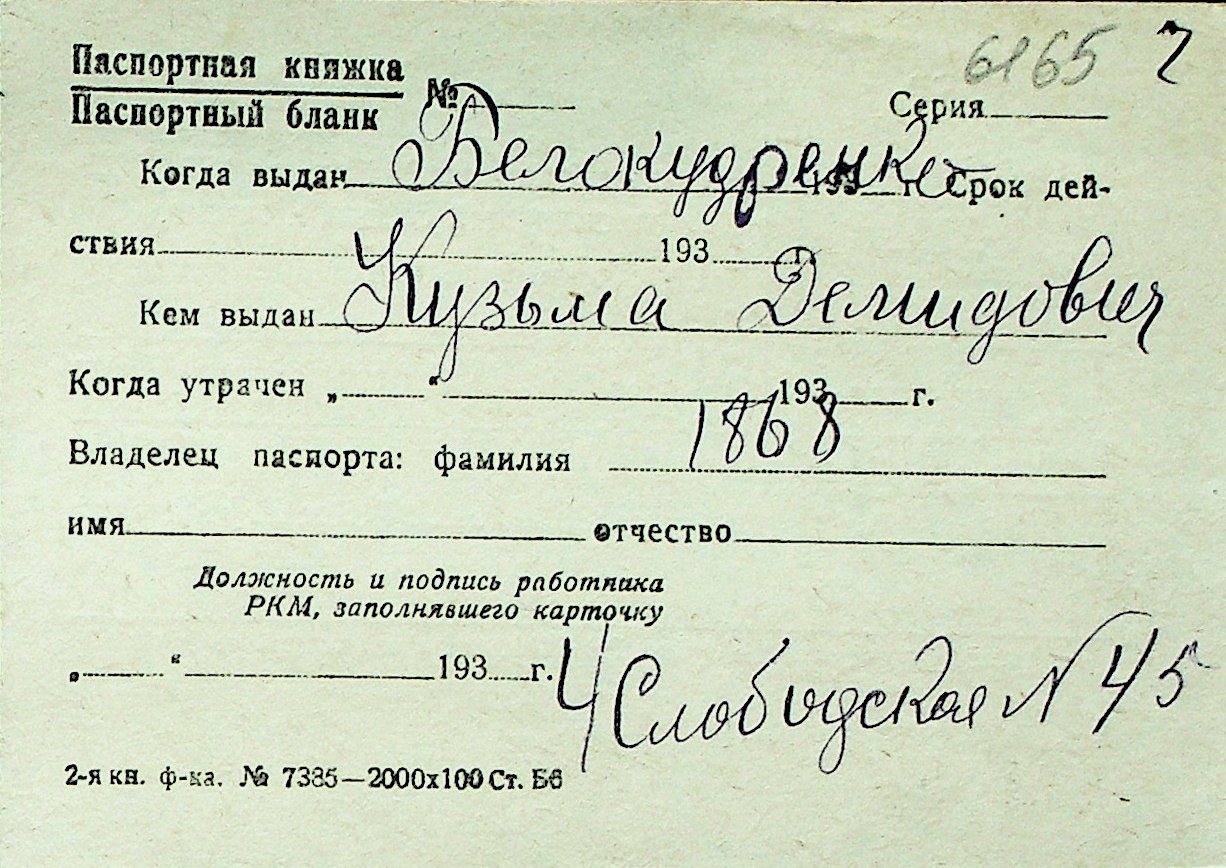 6165 2
Паспортная книжка
Паспортный бланк № Серия
Белокудренко
Когда выдан 193 г. Срок дей-
ствия 193 г.
Кузьма Демидович
Кем выдан
Когда утрачен „ “ 193 г.
1868
Владелец паспорта: фамилия
имя отчество
Должность и подпись работника
РКМ, заполнявшего карточку
„ “ 193 г.
4 Слободская N 45
2-я кн. ф-ка. № 7385—2000х100 Ст. Б6